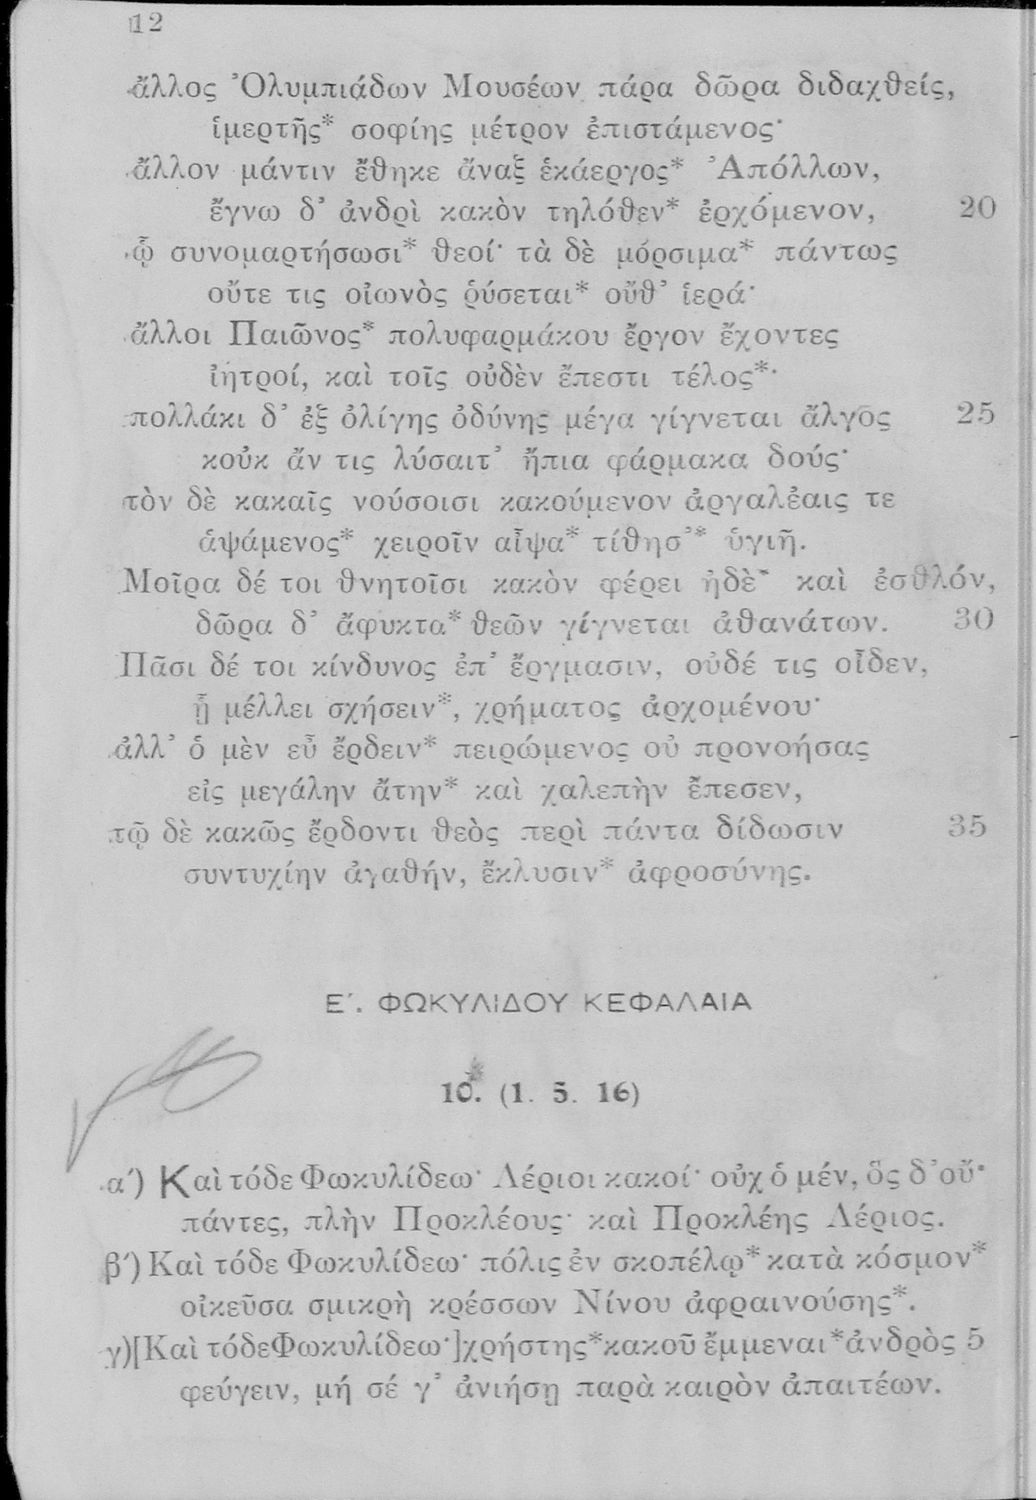 12
ἄλλος Ὀλυμπιάδων Μουσέων πάρα δῶρα διδαχθείς,
ἱμερτῆς* σοφίης μέτρον ἐπιστάμενος·
ἄλλον μάντιν ἔθηκε ἄναξ ἑκάεργος* Ἀπόλλων,
ἔγνω δ᾽ ἀνδρὶ κακὸν τηλόθεν* ἐρχόμενον, 20
ᾧ συνομαρτήσωσι* θεοί· τὰ δὲ μόρσιμα* πάντως
οὔτε τις οἰωνὸς ῥύσεται* οὔθ᾽ ἱερά·
ἄλλοι Παιῶνος* πολυφαρμάκου ἔργον ἔχοντες
ἰητροί, καὶ τοῖς οὐδὲν ἔπεστι τέλος*·
πολλάκι δ᾽ ἐξ ὀλίγης ὀδύνης μέγα γίγνεται ἄλγος 25
κοὐκ ἄν τις λύσαιτ᾽ ἤπια φάρμακα δούς·
τὸν δὲ κακαῖς νούσοισι κακούμενον ἀργαλέαις τε
ἁψάμενος* χειροῖν αἶψα* τίθησ᾽* ὑγιῆ.
Μοῖρα δέ τοι θνητοῖσι κακὸν φέρει ἠδὲ* καὶ ἐσθλόν,
δῶρα δ᾽ ἄφυκτα* θεῶν γίγνεται ἀθανάτων. 30
Πᾶσι δέ τοι κίνδυνος ἐπ᾽ ἔργμασιν, οὐδέ τις οἶδεν,
ᾗ μέλλει σχήσειν*, χρήματος ἀρχομένου·
ἀλλ᾽ ὁ μὲν εὖ ἔρδειν* πειρώμενος οὐ προνοήσας
εἰς μεγάλην ἄτην* καὶ χαλεπὴν ἔπεσεν,
τῷ δὲ κακῶς ἔρδοντι θεὸς περὶ πάντα δίδωσιν 35
συντυχίην ἀγαθήν, ἔκλυσιν* ἀφροσύνης.
Ε΄. ΦΩΚΥΛΙΔΟΥ ΚΕΦΑΛΑΙΑ
10. (1. 5. 16)
α΄) Καὶ τόδε Φωκυλίδεω· Λέριοι κακοί· οὐχ ὁ μέν, ὃς δ᾽ οὔ·
πάντες, πλὴν Προκλέους· καὶ Προκλέης Λέριος.
β΄) Καὶ τόδε Φωκυλίδεω· πόλις ἐν σκοπέλῳ* κατὰ κόσμον*
οἰκεῦσα σμικρὴ κρέσσων Νίνου ἀφραινούσης*.
γ) [Καὶ τόδε Φωκυλίδεω·] χρήστης* κακοῦ ἔμμεναι* ἀνδρὸς 5
φεύγειν, μή σέ γ᾽ ἀνιήσῃ παρὰ καιρὸν ἀπαιτέων.